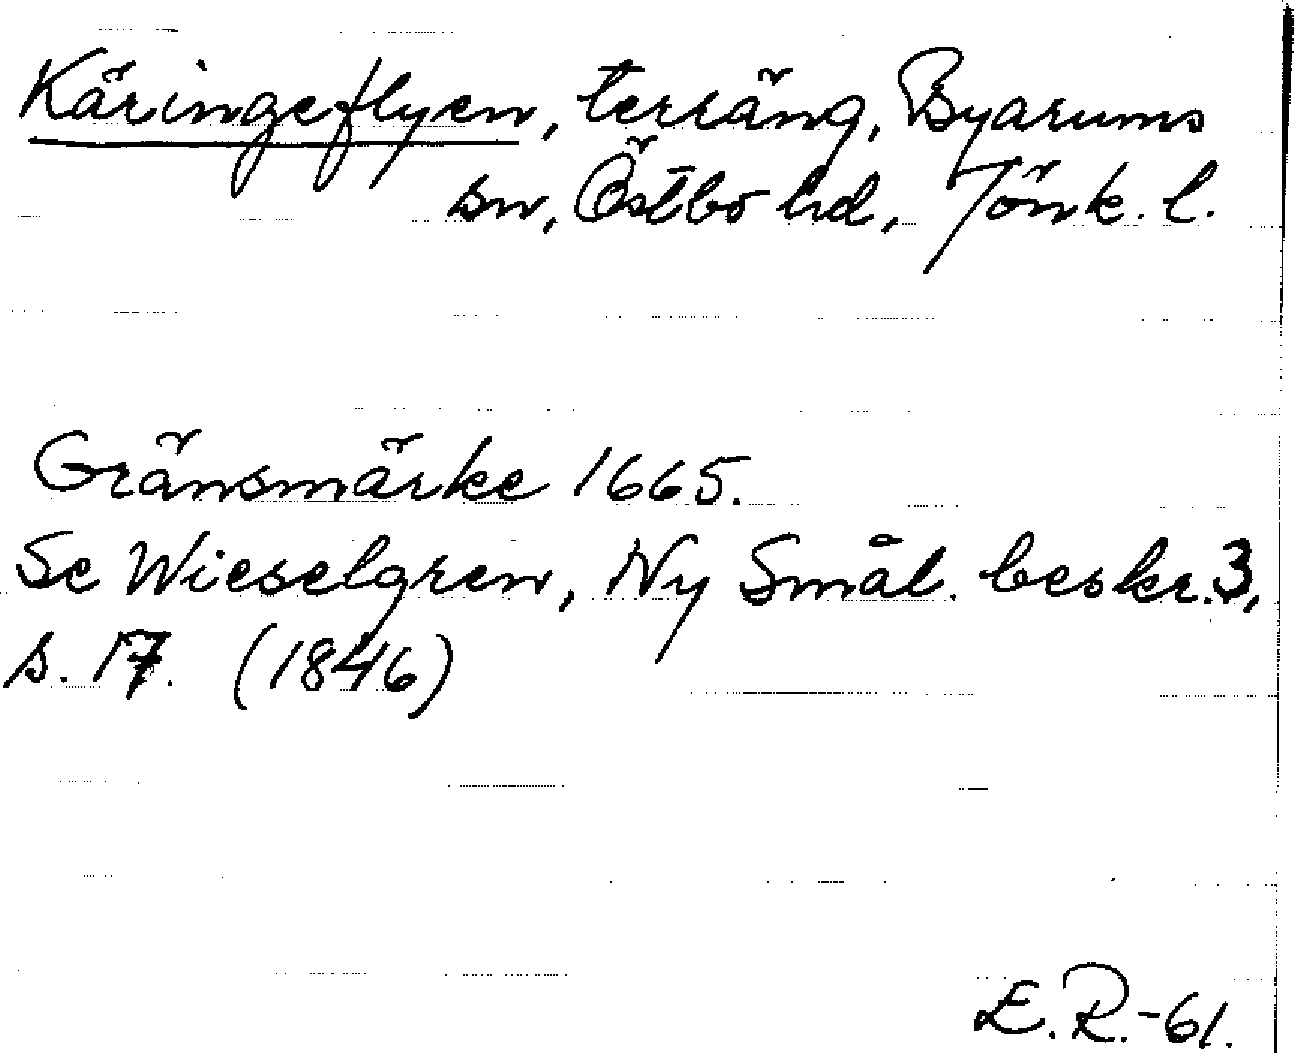 Käringeflyen, terräng, Byarums
sn, Östbo hd, Jönk. l.
Gränsmärke 1665.
Se Wieselgren, Ny Smål. beskr. 3,
s. 17. (1846)
E.R.-61.